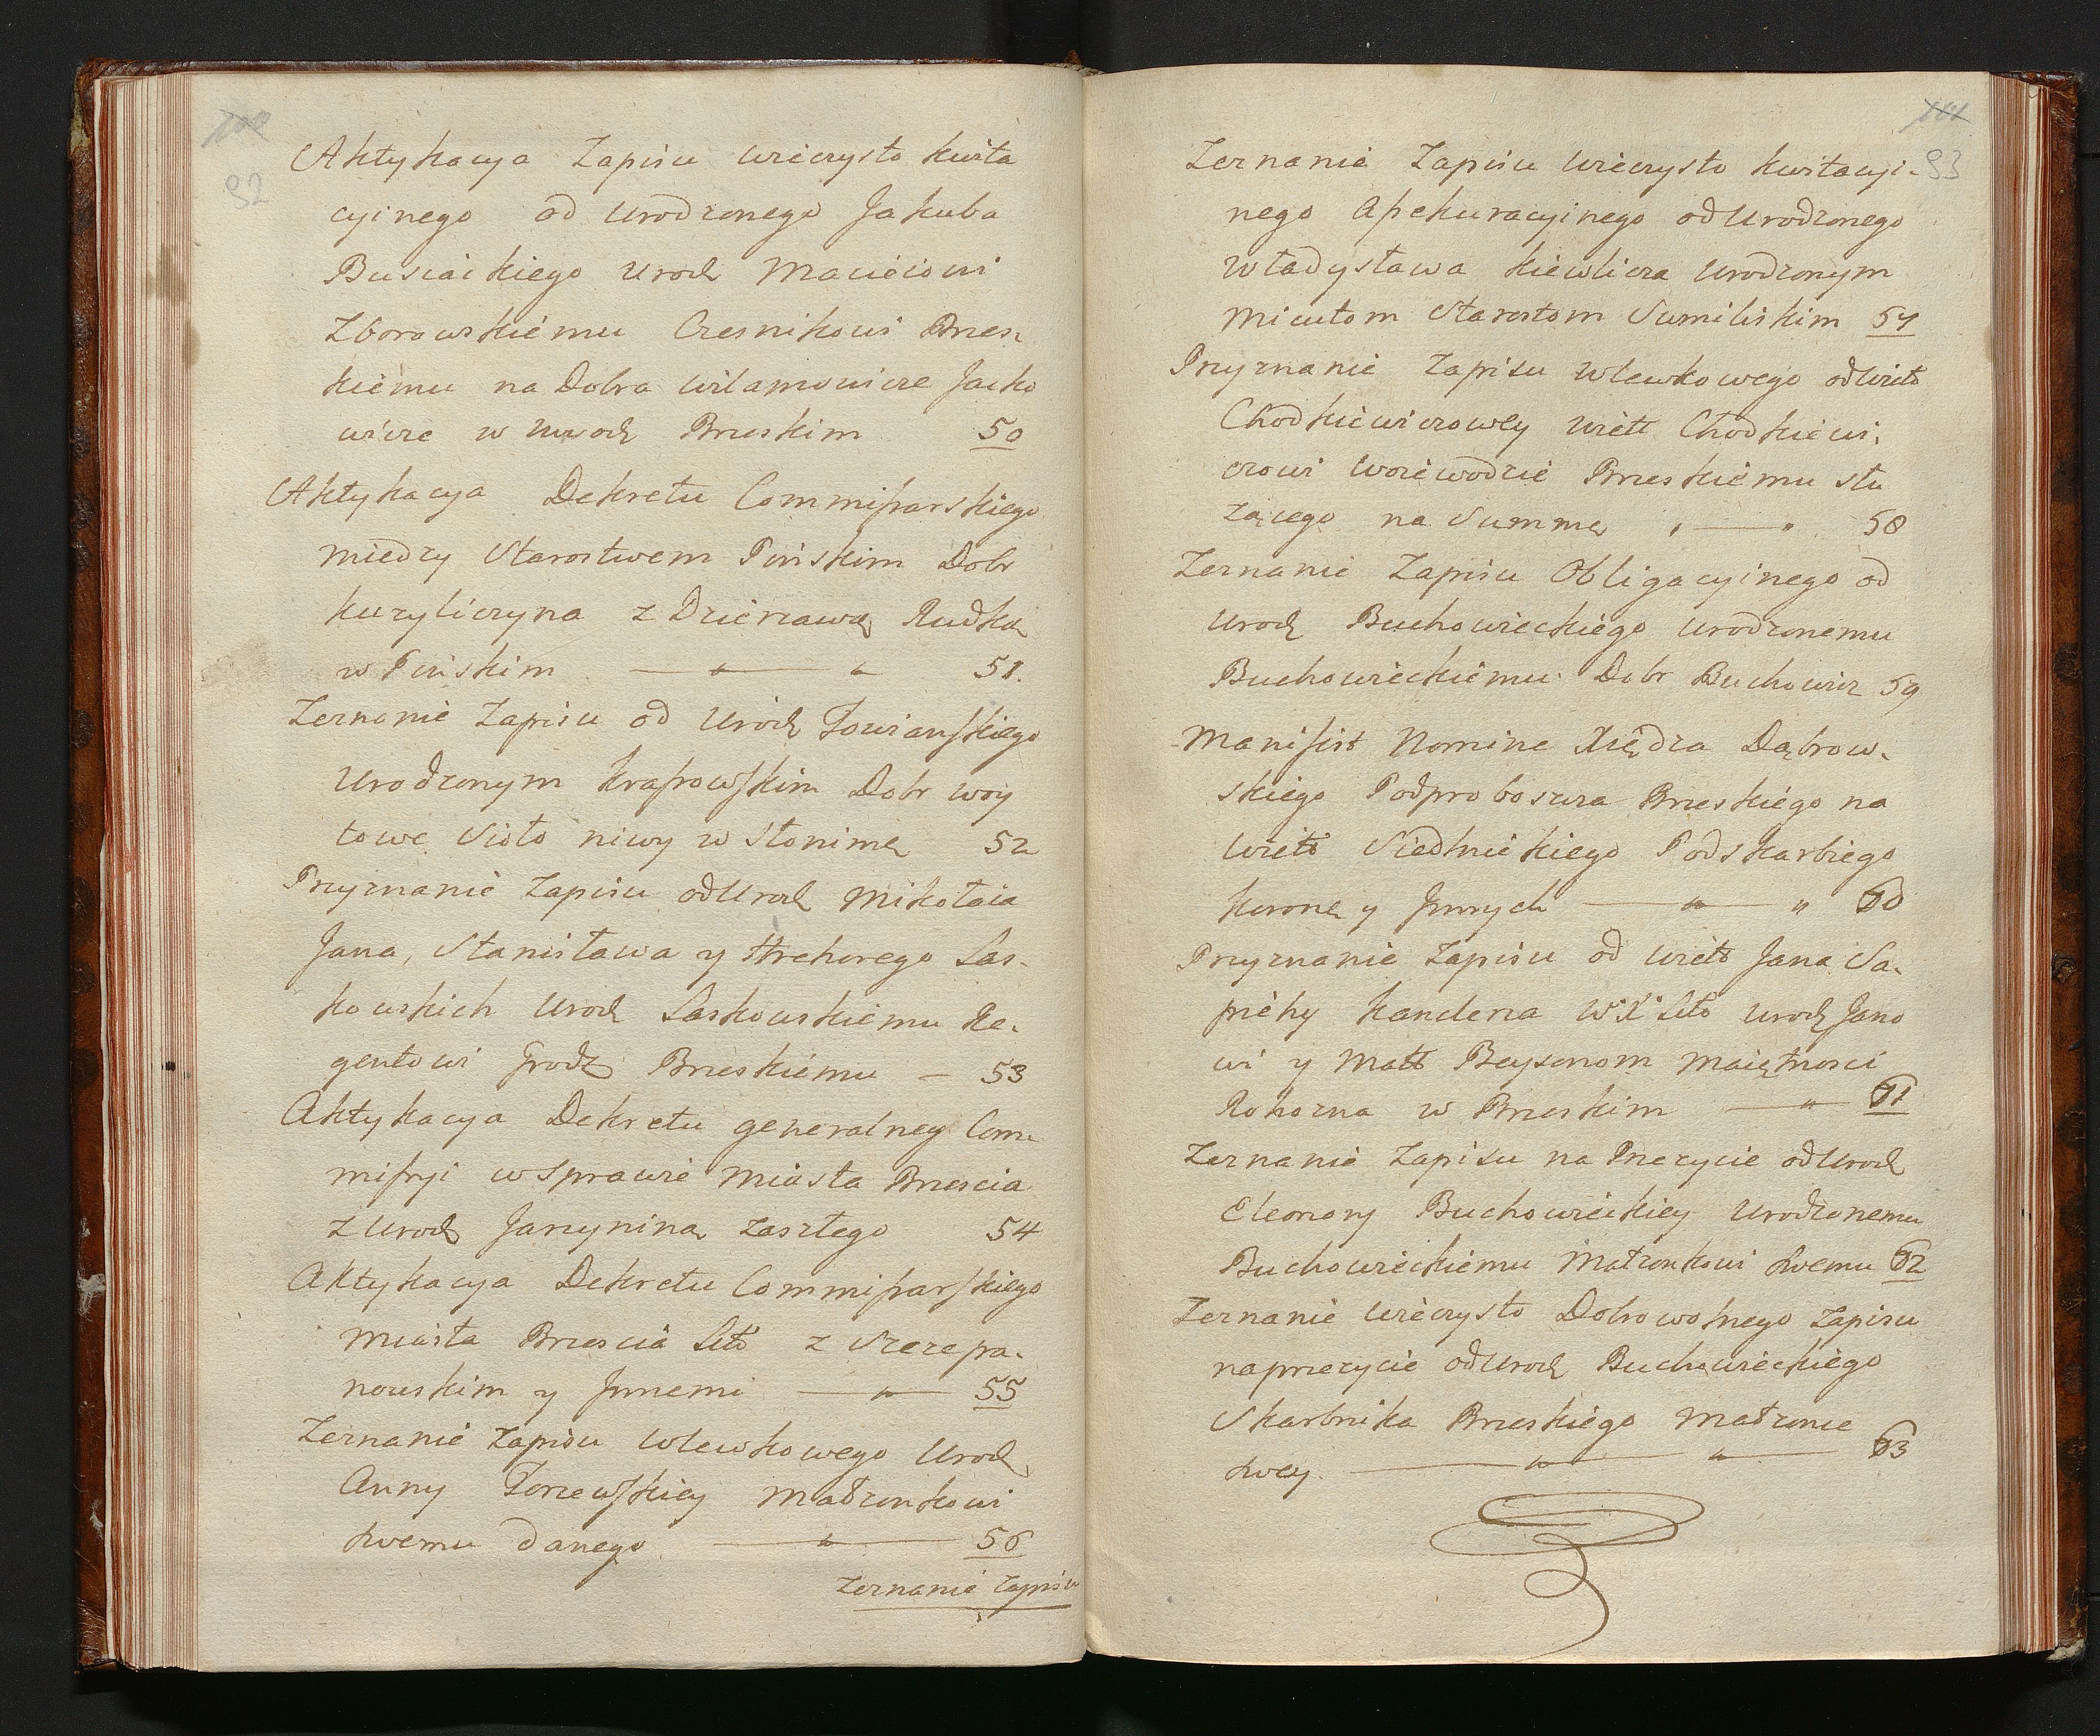 92
Aktykacya Zapisu wieczysto kwita
cyinego od Urodzonego Jakuba
Busiackiego Urodz Macieiowi
Zborowskiemu Czesnikowi Brzes=
kiemu na Dobra Wilamowicze Jacko
wicze w Wwodz Brzeskim 50
Aktykacya Dekretu Commissarskiego
miedzy Starostwem Pinskim Dobr
Kuzyliczyna z Dzierzawą Rudką
w Pinskim — " — " 51.
Zeznanie Zapisu od Urodz Towianskiego
Urodzonym Krassowskim Dobr woy
towe Sioło niwy w Słonimę 52
Przyznanie Zapisu od Urodz Mikołaia
Jana, Stanisława y Hrehorego Las-
kowskich Urodz Laskowskiemu Re-
gentowi Grodz Brzeskiemu — 53
Aktykacya Dekretu generalney Com=
missyi w Sprawie Miasta Brzescia
z Urodz Janzyniną zaszłego 54
Aktykacya Dekretu Commissarskiego
Miasta Brzescia Litt z Szczepa-
nowskim y Jnnemi — " — 55
Zeznanie Zapisu Wlewkowego Urodz
Anny Torzewskiey Małzonkowi
swemu danego — " — 56
Zeznanie Zapisu
93
Zeznanie Zapisu Wieczysto kwitacyi-
nego Assekuracyinego od Urodzonego
Władysława Kiewlicza Urodzonym
Micutom Starostom Sumiliskim 57
Przyznanie Zapisu Wlewkowego od Wielt
Chodkiewiczowey Wielt Chodkiewi-
czowi Woiewodzie Brzeskiemu słu
zącego na Summę " — " 58
Zeznanie Zapisu Obligacyinego od
Urodz Buchowieckiego Urodzonemu
Buchowieckiemu Dobr Buchowicz 59
Manifest Nomine Xiędza Dąbrow-
skiego Podproboszcza Brzeskiego na
Wielt Siedlnickiego Podskarbiego
Koronę y Jnnych — " — " 60
Przyznanie Zapisu od Wielt Jana Sa-
piehy Kanclerza W: X: Litt Urodz Jano
wi y Matt Beysenom Maiętnosci
Rohozna w Brzeskim — " — 61
Zeznanie Zapisu na Przezycie od Urodz
Eleonory Buchowieckiey Urodzonemu
Buchowieckiemu Małzonkowi swemu 62
Zeznanie Wieczysto Dobrowolnego Zapisu
na przezycie od Urodz Buchowieckiego
Skarbnika Brzeskiego Małzonce
swey. — " — " — 63